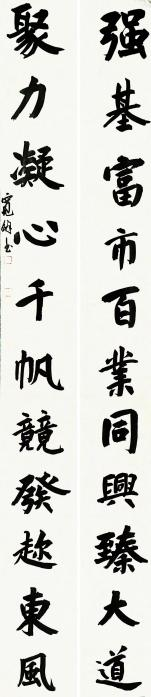 强基富市百業同興臻大道
聚力凝心千帆競發趂東風